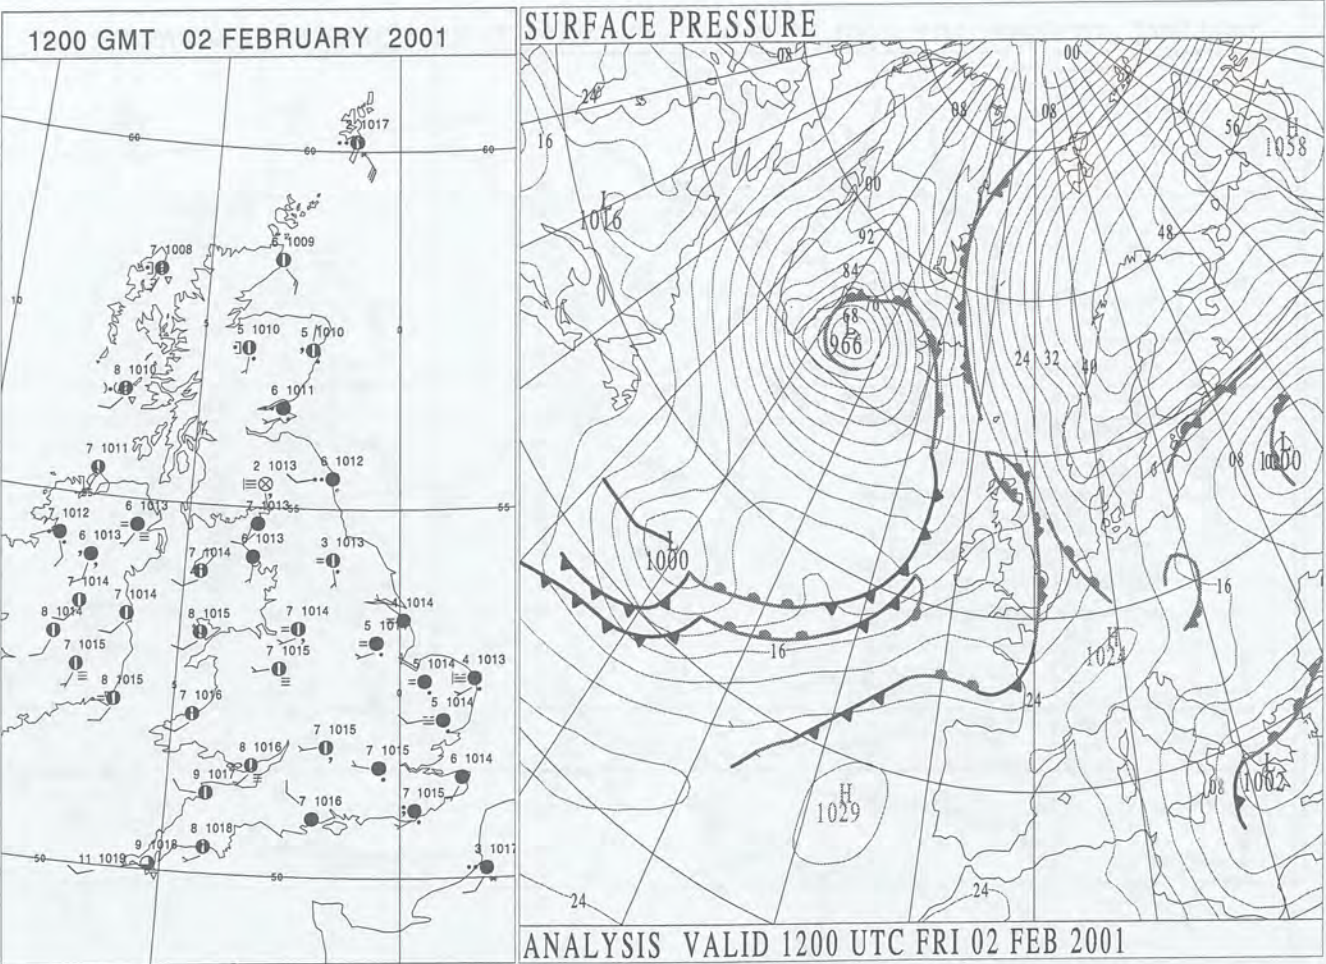 1200 GMT 02 FEBRUARY 2001
2 1017
60
60
60
6 1009
7 1008
10
5
0
5 1010
5 1010
8 1010
6 1011
7 1011
2 1013
6 1012
55
1012
6 1013
7 1013
55
6 1013
6 1013
3 1013
7 1014
7 1014
7 1014
8 1014
8 1015
7 1014
4 1014
5 1014
7 1015
7 1015
5 1014
4 1013
8 1015
5
7 1016
0
5 1014
7 1015
8 1016
7 1015
6 1014
9 1017
7 1016
7 1015
8 1018
9 1018
11 1019
50
50
3 1017
SURFACE PRESSURE
08
00
24
08
08
16
56
H
1058
00
L
1016
92
48
84
76
68
L
966
24
32
40
L
1000
08
L
1000
16
16
H
1024
24
L
1002
08
H
1029
24
24
ANALYSIS VALID 1200 UTC FRI 02 FEB 2001